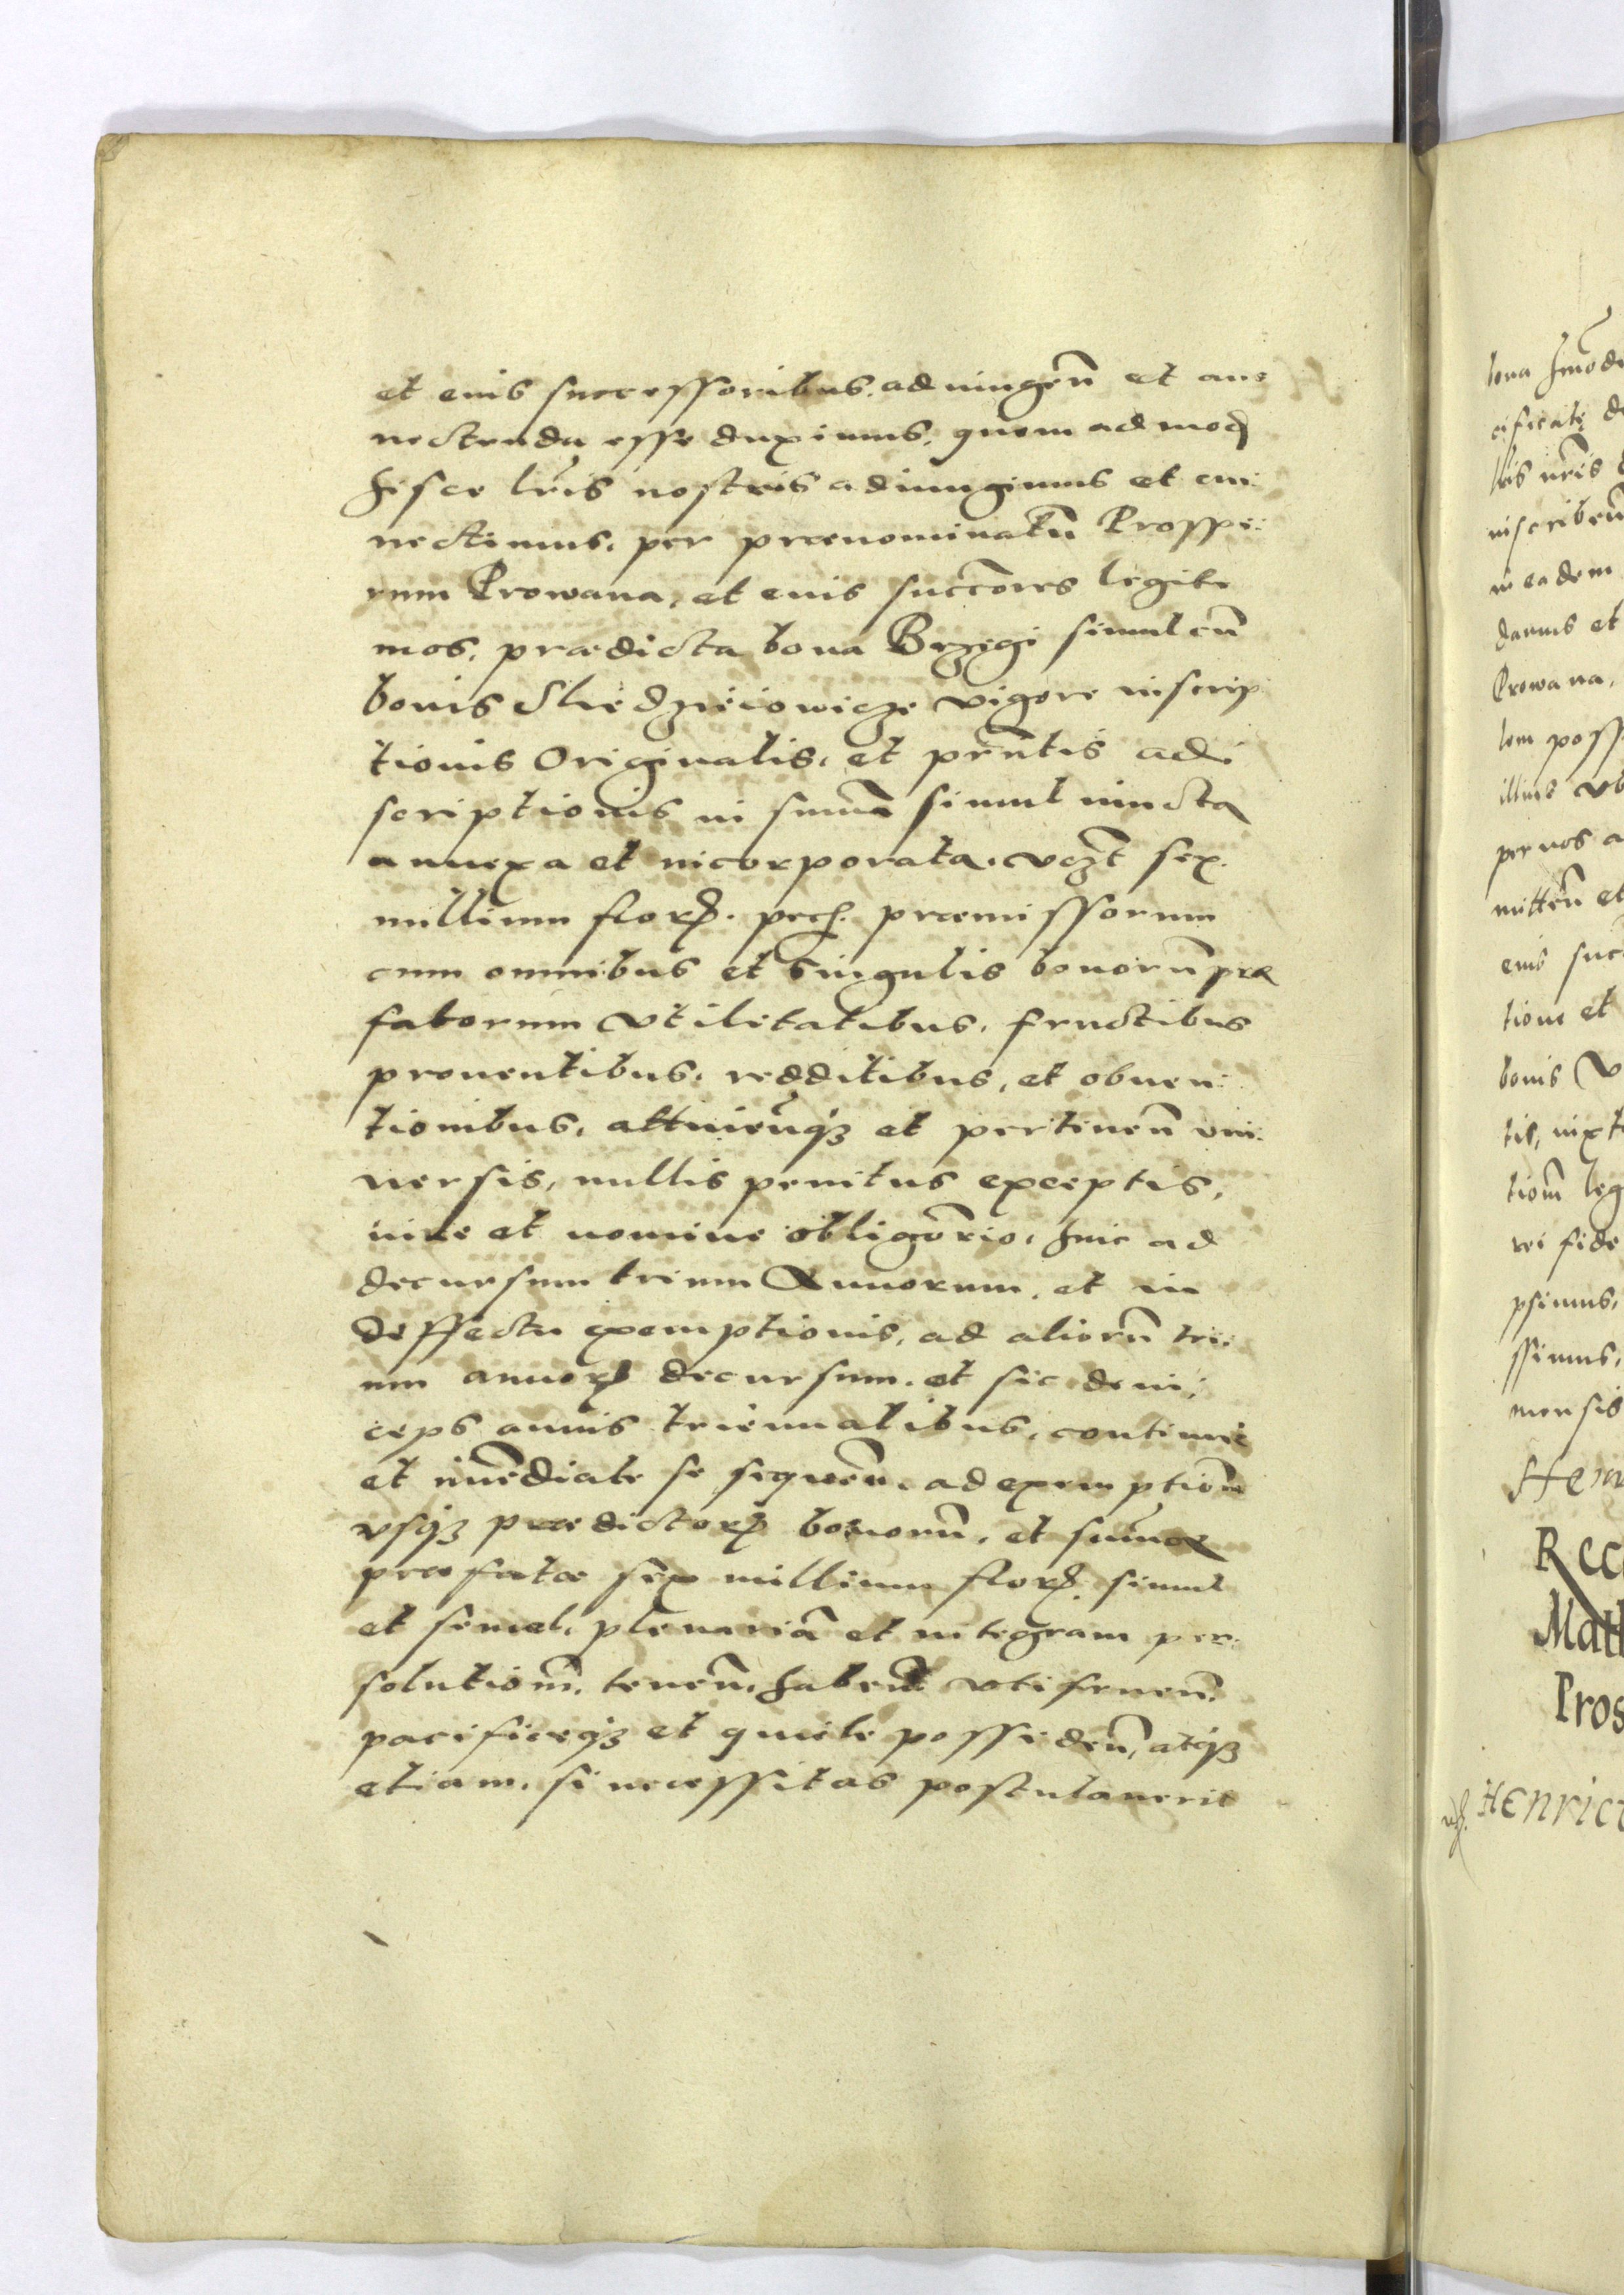 et eius successoribus, adiungen̄ et an=
nectenda esse duximus, quem ad mod
hisce lr̄is nostris adiungimus et an:
nectimus, per prænominatū Prospe:
rum Prowana, et eius succōres legiti
mos, prædicta bona Brzegi simul cū
bonis Sledzieiowicze vigore inscrip
tionis Originalis, et pr̄ntis ad:
scriptionis in summa simul iuncta
annexa et incorporata, vczt sex
millium flor. pecˢ. præmissorum
cum omnibus et singulis bonorū præ
fatorum vtilitatibus, fructibus
prouentibus, redditibus, et obuen:
tionibus, attinen̄q3 et pertinen̄ vni:
uersis, nullis penitus exceptis,
iure et nomine obligōrio, hinc ad
decursum trium Annorum, et in
deffectu exemptionis, ad aliorū tri:
um annor decursum, et sic dein:
ceps annis triennalibus, continue
et imēdiate se sequen̄, ad exemptiom̄
vsq3 prædictor bonorū, et summæ
præfatæ sex millium flor. simul
et semel, plenariā et integram per:
solutiom̄, tenen̄, haben̄ vti fruen̄,
pacificeq3 et quiete possiden̄, atq3
etiam, si necessitas postulauerit
bona
cificate
lr̄is nr̄is
inscriben̄
in eadem
damus et
Prowana,
lem poss
illius vt
per nos a
mitten̄ et
eius suc
tione et
bonis
tis, iuxta
tiom̄ leg
rei fide
psimus,
ssimus,
mensis
Henr
Rec
Matt
Pros
Henric